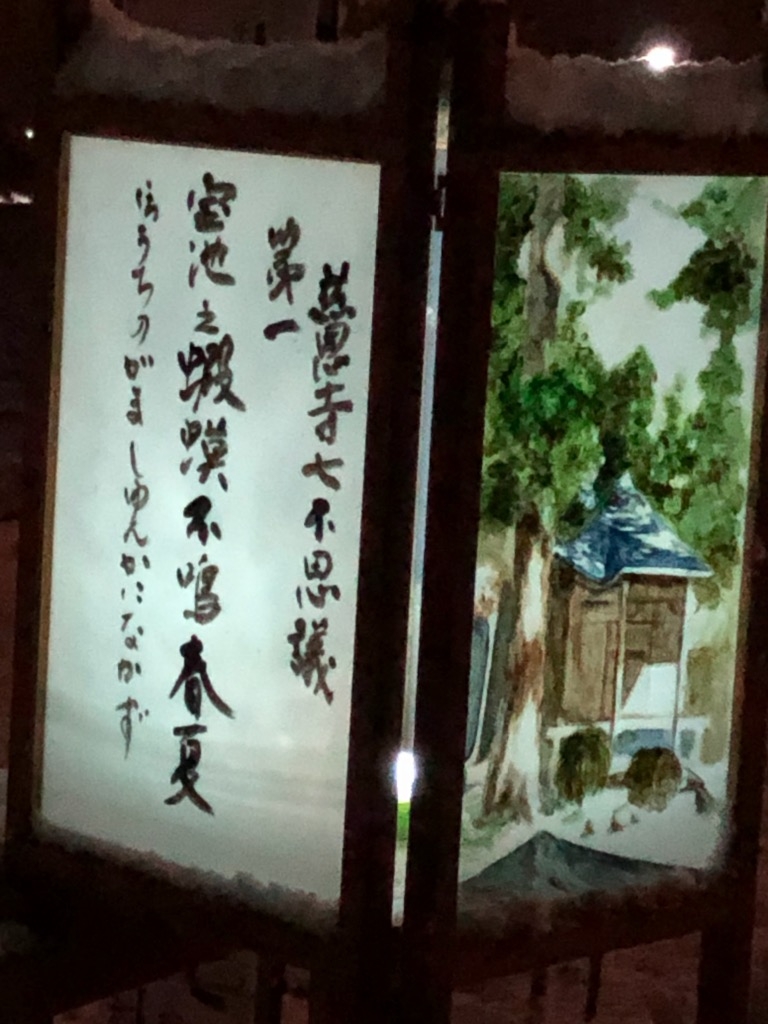 慈恩寺七不思議
第一
宝池之蝦蟆不鳴春夏
ほうちのがましゅんかになかず